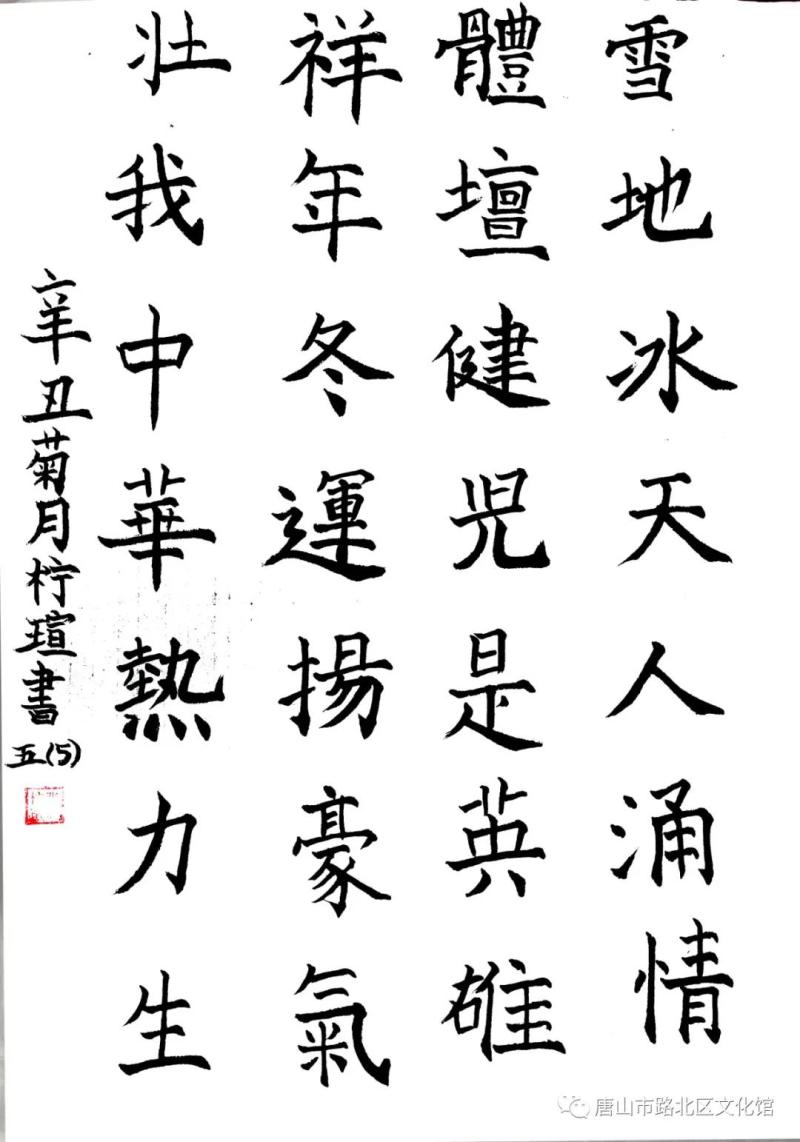 雪地冰天人涌情
體壇健児是英雄
祥年冬運揚豪氣
壯我中華熱力生
辛丑菊月柠瑄書
五(5)
唐山市路北区文化馆